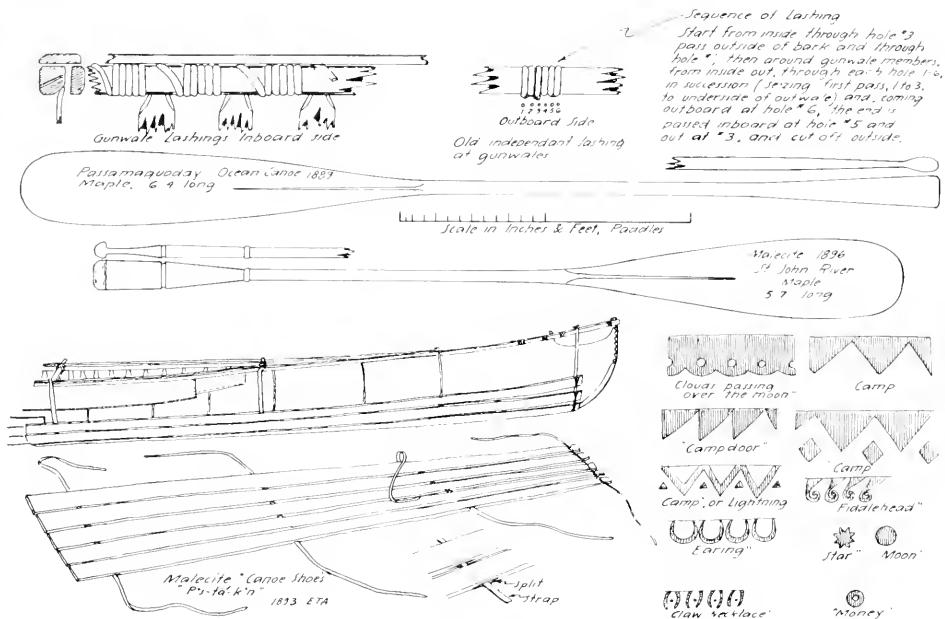 Sequence of Lashing
Start from inside through hole #3
pass outside of bark and through
hole #1, then around gunwale members,
from inside out, through each hole 1-6,
in succession (seizing first pass, 1 to 3,
to underside of outwale) and, coming
outboard at hole #6, the end is
passed inboard at hole #5 and
out at #3, and cut off outside.
Gunwale Lashings Inboard side
1 2 3 4 5 6
Outboard Side
Old independant lashing
at gunwales
Passamaquoday Ocean Canoe 1889
Maple. 6 4 long
Scale in Inches & Feet, Paddles
Malecite 1896
St John River
Maple
5 7 long
Clouds passing
over the moon"
Camp
"Camp door"
Camp
Camp", or Lightning
Fiddlehead"
Earing"
Star"
Moon"
Malecite "Canoe Shoes"
"P's-ta'-k'n"
1893 ETA
split
strap
"Claw Necklace"
"Money"